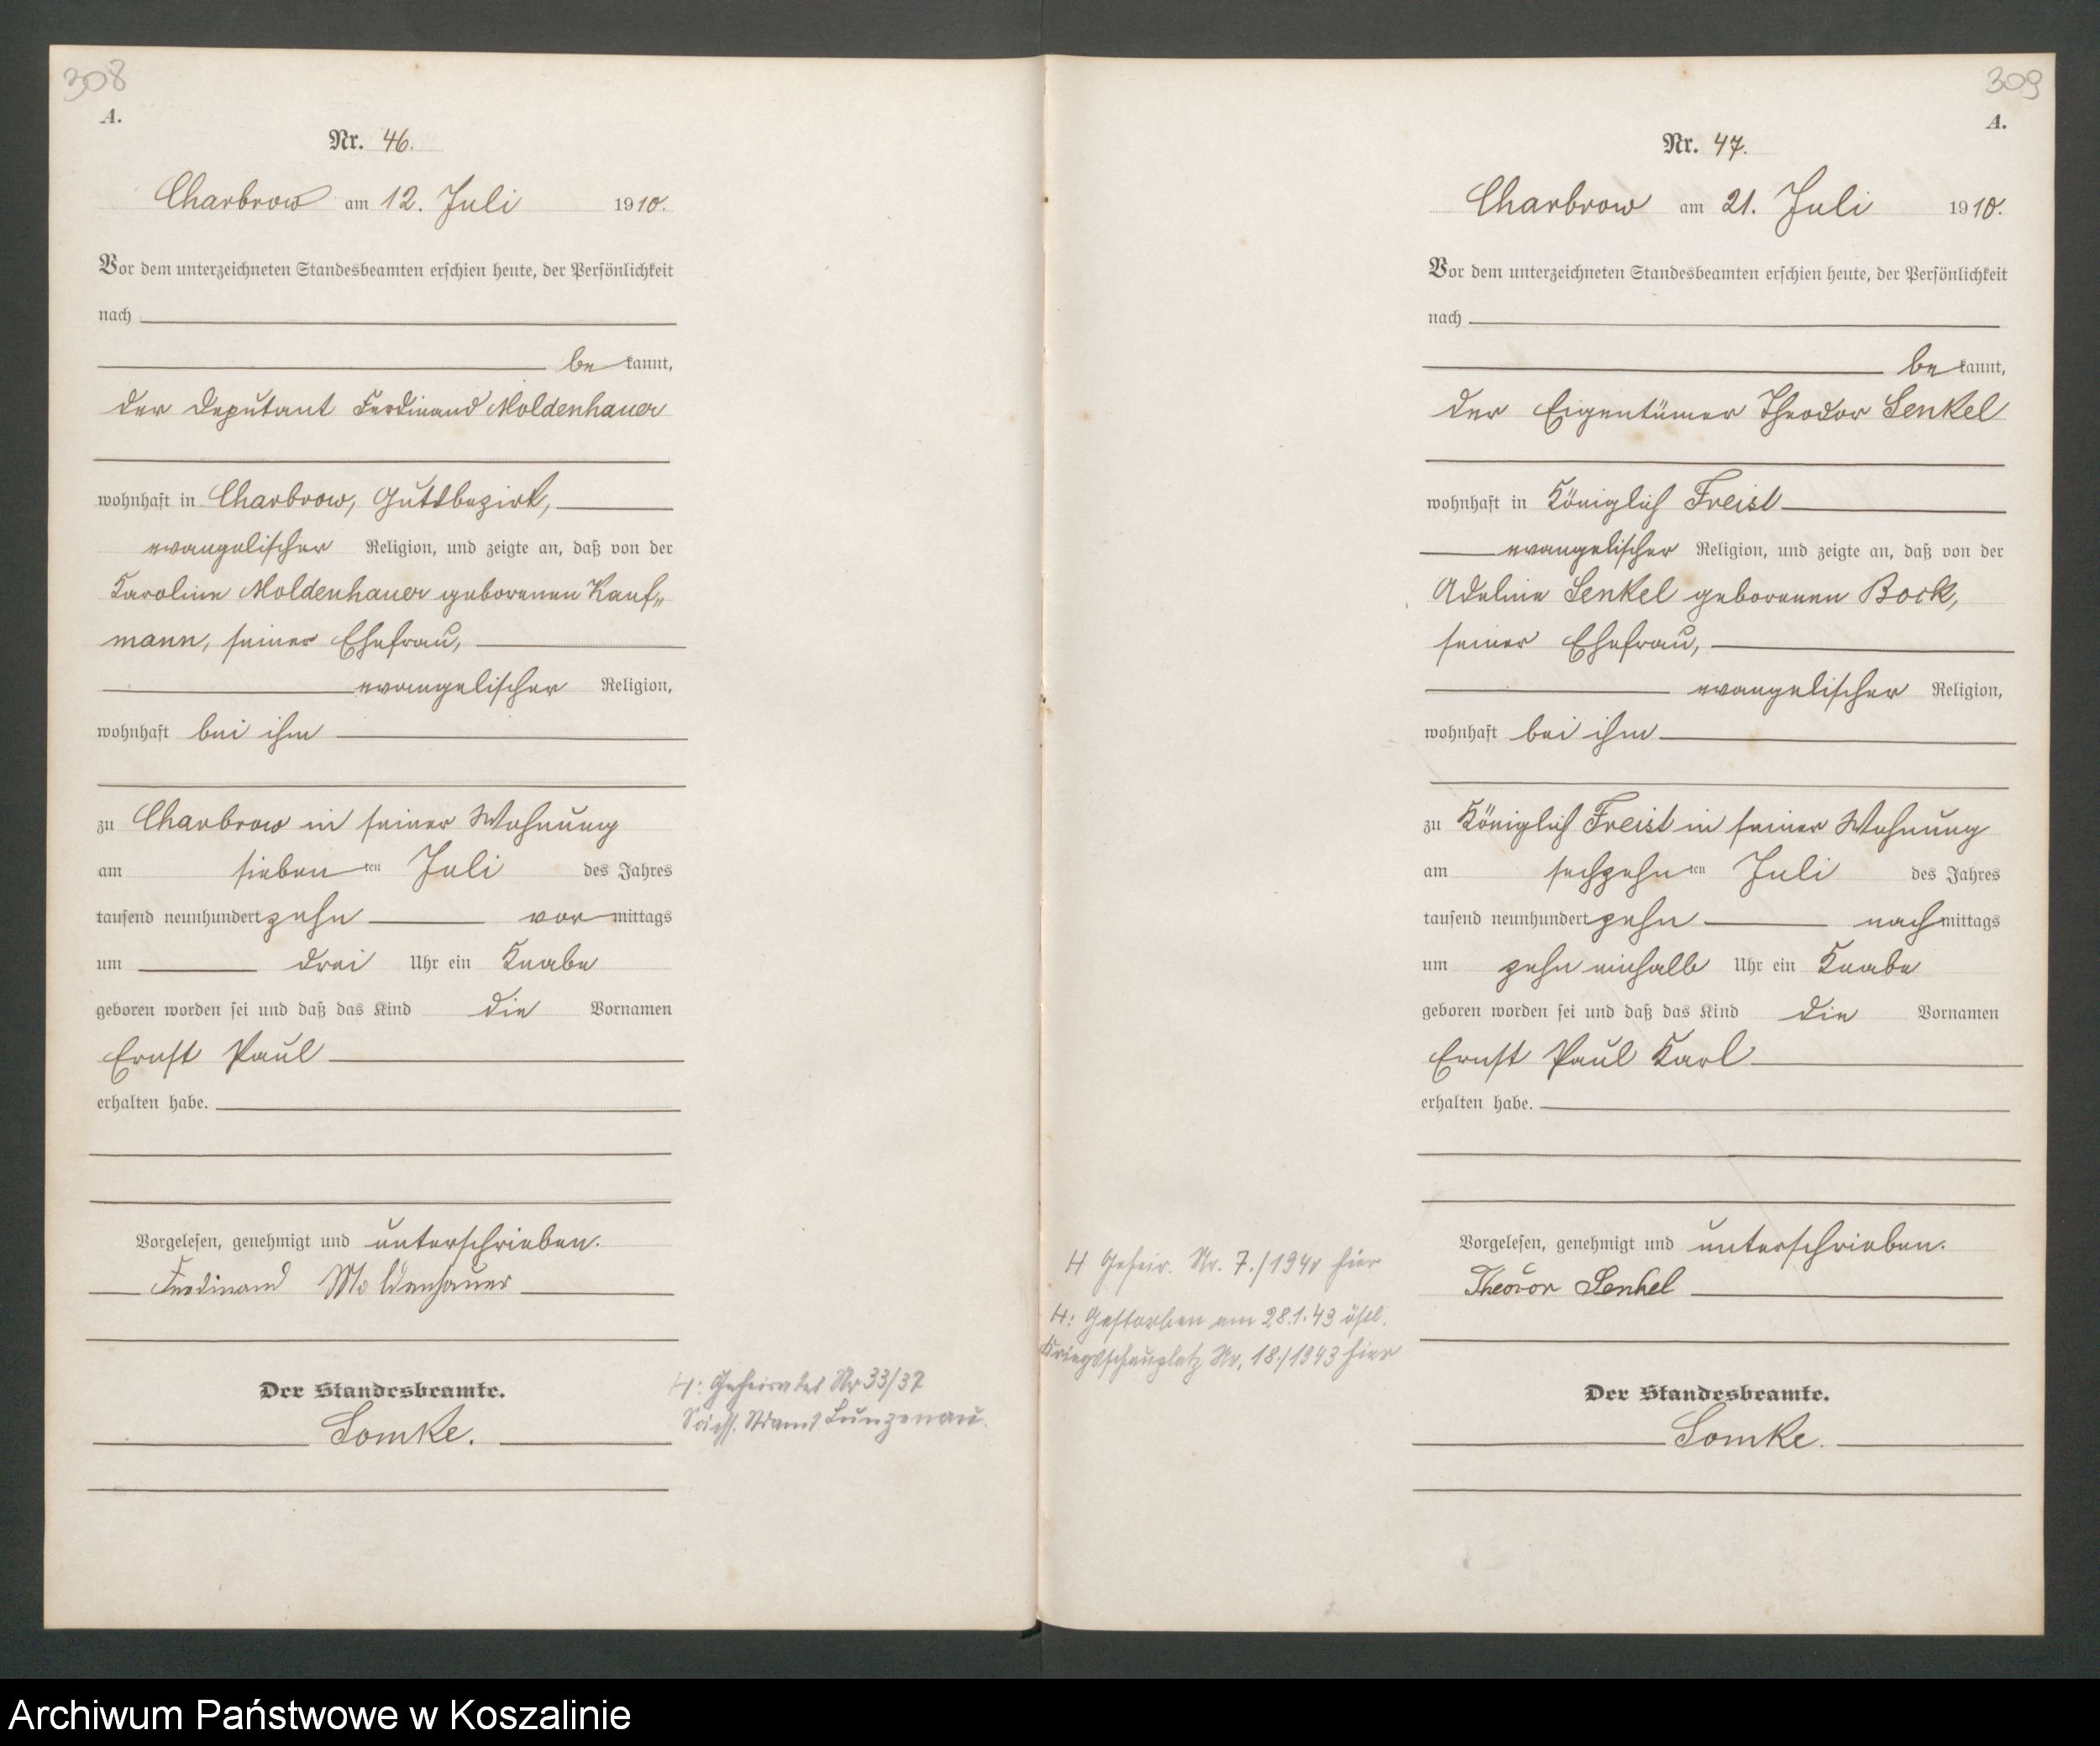 308
A.
Nr. 46.
Charbrow am 12. Juli 1910.
Vor dem unterzeichneten Standesbeamten erschien heute, der Persönlichkeit
nach
be kannt,
der Deputant Ferdinand Moldenhauer
wohnhaft in Charbrow, Gutsbezirk,
evangelischer Religion, und zeigte an, daß von der
Karoline Moldenhauer geborenen Kauf„
mann, seiner Ehefrau,
evangelischer Religion,
wohnhaft bei ihm
zu Charbrow in seiner Wohnung
am sieben ten Juli des Jahres
tausend neunhundert zehn vor mittags
um drei Uhr ein Knabe
geboren worden sei und daß das Kind die Vornamen
Ernst Paul
erhalten habe.
Vorgelesen, genehmigt und unterschrieben.
Ferdinand Moldenhauer
Der Standesbeamte.
Lomke.
H: Geheiratet Nr 33/37
Sächs. Stdamt Lunzenau.
309
A.
Nr. 47.
Charbrow am 21. Juli 1910.
Vor dem unterzeichneten Standesbeamten erschien heute, der Persönlichkeit
nach
be kannt,
der Eigentümer Theodor Senkel
wohnhaft in Königlich Freist
evangelischer Religion, und zeigte an, daß von der
Adeline Senkel geborenen Bock,
seiner Ehefrau,
evangelischer Religion,
wohnhaft bei ihm
zu Königlich Freist in seiner Wohnung
am sechzehn ten Juli des Jahres
tausend neunhundert zehn nach mittags
um zehn einhalb Uhr ein Knabe
geboren worden sei und daß das Kind die Vornamen
Ernst Paul Karl
erhalten habe.
Vorgelesen, genehmigt und unterschrieben.
Theodor Senkel
Der Standesbeamte.
Lomke.
H Geheir. Nr. 7./1940 hier
H: Gestorben am 28.1.43 östl.
Kriegsschauplatz Nr. 18./1943 hier
Archiwum Państwowe w Koszalinie